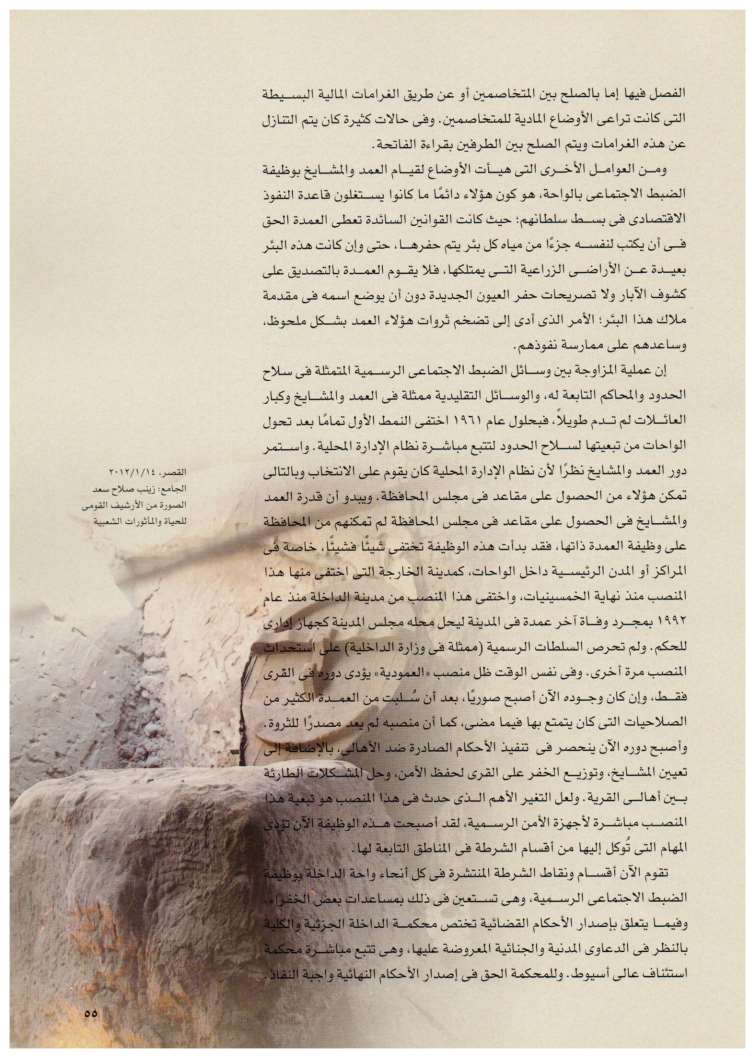 الفصل فيها إما بالصلح بين المتخاصمين أو عن طريق الغرامات المالية البسيطة
التى كانت تراعى الأوضاع المادية للمتخاصمين. وفى حالات كثيرة كان يتم التنازل
عن هذه الغرامات ويتم الصلح بين الطرفين بقراءة الفاتحة.
ومن العوامل الأخرى التى هيأت الأوضاع لقيام العمد والمشايخ بوظيفة
الضبط الاجتماعى بالواحة، هو كون هؤلاء دائمًا ما كانوا يستغلون قاعدة النفوذ
الاقتصادى فى بسط سلطانهم؛ حيث كانت القوانين السائدة تعطى العمدة الحق
فى أن يكتب لنفسه جزءًا من مياه كل بئر يتم حفرها، حتى وإن كانت هذه البئر
بعيدة عن الأراضى الزراعية التى يمتلكها، فلا يقوم العمدة بالتصديق على
كشوف الآبار ولا تصريحات حفر العيون الجديدة دون أن يوضع اسمه فى مقدمة
ملاك هذا البئر؛ الأمر الذى أدى إلى تضخم ثروات هؤلاء العمد بشكل ملحوظ،
وساعدهم على ممارسة نفوذهم.
إن عملية المزاوجة بين وسائل الضبط الاجتماعى الرسمية المتمثلة فى سلاح
الحدود والمحاكم التابعة له، والوسائل التقليدية ممثلة فى العمد والمشايخ وكبار
العائلات لم تدم طويلاً، فبحلول عام ١٩٦١ اختفى النمط الأول تمامًا بعد تحول
الواحات من تبعيتها لسلاح الحدود لتتبع مباشرة نظام الإدارة المحلية. واستمر
دور العمد والمشايخ نظرًا لأن نظام الإدارة المحلية كان يقوم على الانتخاب وبالتالى
تمكن هؤلاء من الحصول على مقاعد فى مجلس المحافظة. ويبدو أن قدرة العمد
والمشايخ فى الحصول على مقاعد فى مجلس المحافظة لم تمكنهم من المحافظة
على وظيفة العمدة ذاتها، فقد بدأت هذه الوظيفة تختفى شيئًا فشيئًا، خاصة فى
المراكز أو المدن الرئيسية داخل الواحات، كمدينة الخارجة التى اختفى منها هذا
المنصب منذ نهاية الخمسينيات، واختفى هذا المنصب من مدينة الداخلة منذ عام
١٩٩٢ بمجرد وفاة آخر عمدة فى المدينة ليحل محله مجلس المدينة كجهاز إدارى
للحكم. ولم تحرص السلطات الرسمية (ممثلة فى وزارة الداخلية) على استحداث
المنصب مرة أخرى. وفى نفس الوقت ظل منصب «العمودية» يؤدى دوره فى القرى
فقط، وإن كان وجوده الآن أصبح صوريًا، بعد أن سُلبت من العمدة الكثير من
الصلاحيات التى كان يتمتع بها فيما مضى، كما أن منصبه لم يعد مصدرًا للثروة.
وأصبح دوره الآن ينحصر فى تنفيذ الأحكام الصادرة ضد الأهالى، بالإضافة إلى
تعيين المشايخ، وتوزيع الخفر على القرى لحفظ الأمن، وحل المشكلات الطارئة
بين أهالى القرية. ولعل التغير الأهم الذى حدث فى هذا المنصب هو تبعية هذا
المنصب مباشرة لأجهزة الأمن الرسمية، لقد أصبحت هذه الوظيفة الآن تؤدى
المهام التى تُوكل إليها من أقسام الشرطة فى المناطق التابعة لها.
تقوم الآن أقسام ونقاط الشرطة المنتشرة فى كل أنحاء واحة الداخلة بوظيفة
الضبط الاجتماعى الرسمية، وهى تستعين فى ذلك بمساعدات بعض الخفراء،
وفيما يتعلق بإصدار الأحكام القضائية تختص محكمة الداخلة الجزئية والكلية
بالنظر فى الدعاوى المدنية والجنائية المعروضة عليها، وهى تتبع مباشرة محكمة
استئناف عالى أسيوط. وللمحكمة الحق فى إصدار الأحكام النهائية واجبة النفاذ.
القصر، ٢٠١٢/١/١٤
الجامع: زينب صلاح سعد
الصورة من الأرشيف القومى
للحياة والمأثورات الشعبية
٥٥